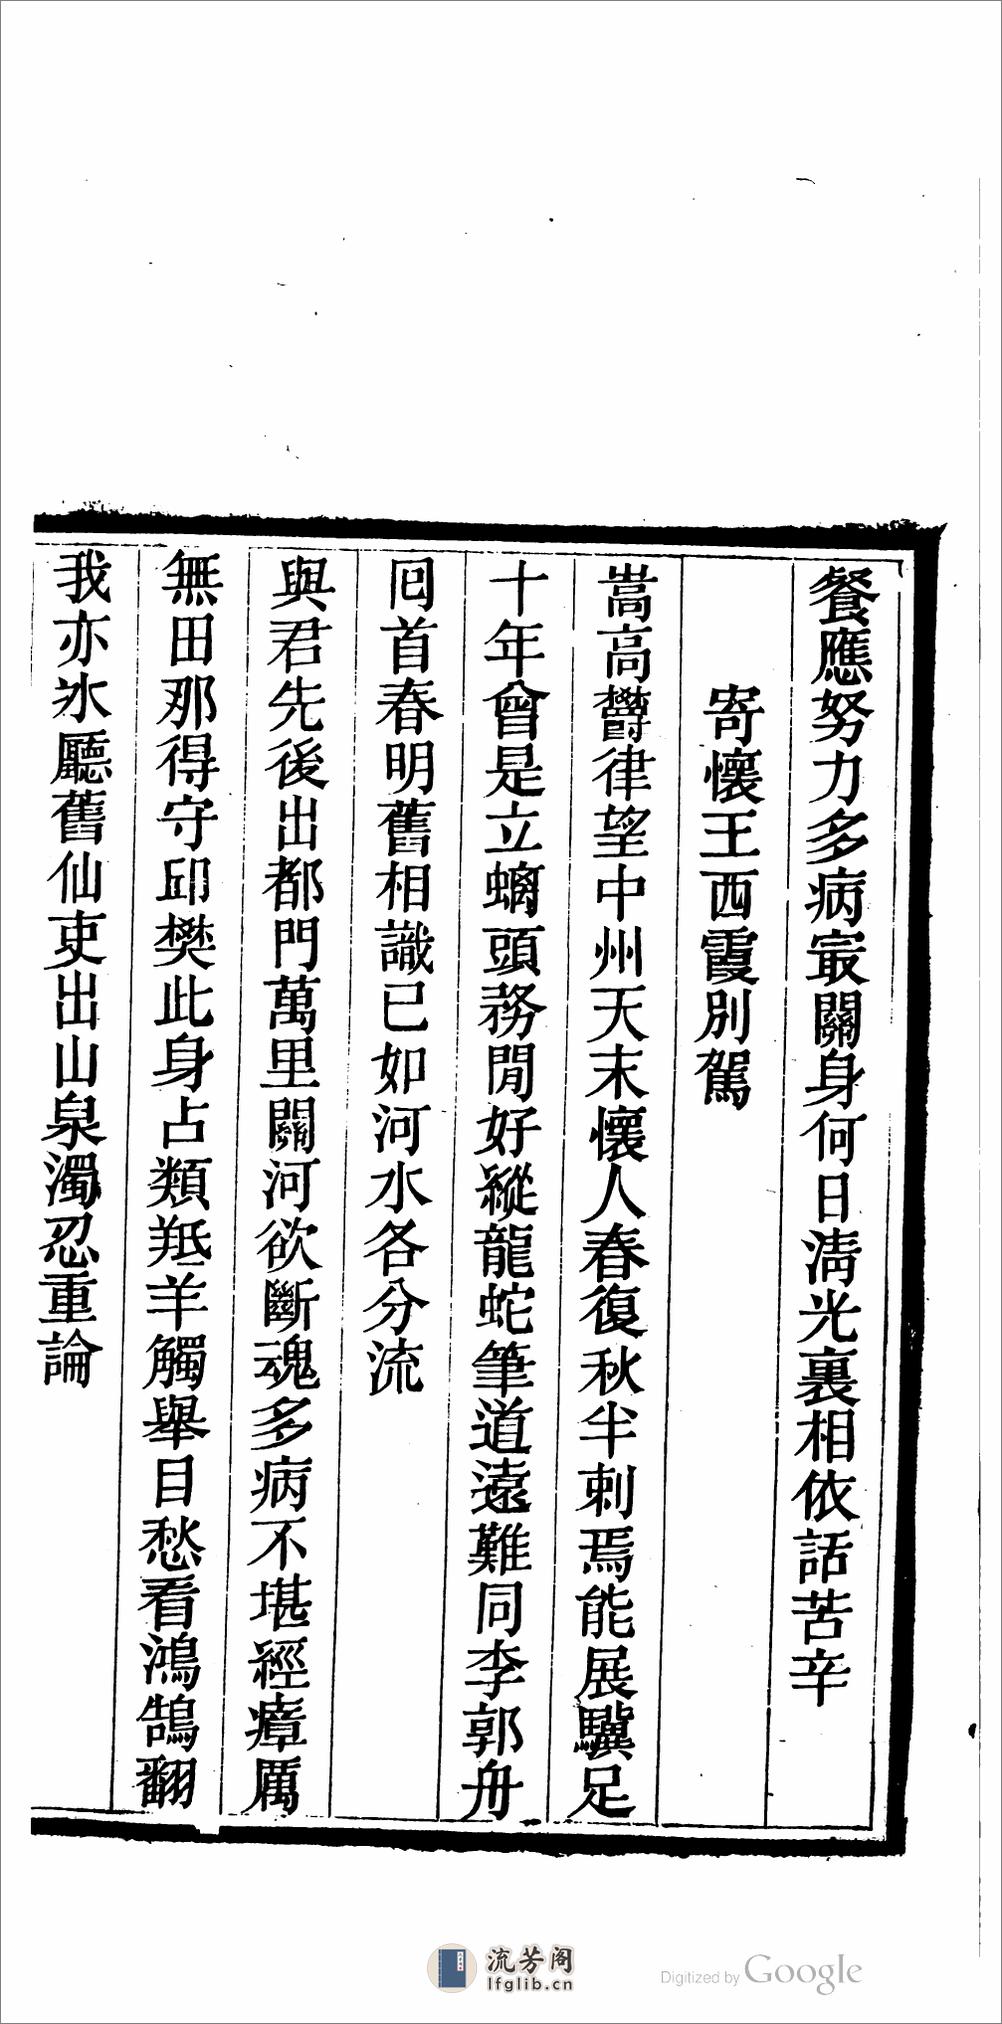 餐應努力多病㝡關身何日清光裏相依話苦辛
寄懷王西霞別駕
嵩高欝律望中州天末懷人春復秋半刺焉能展驥足
十年曾是立螭頭務閒好縱龍蛇筆道遠難同李郭舟
囘首春明舊相識已如河水各分流
與君先後出都門萬里關河欲斷魂多病不堪經瘴厲
無田那得守邱樊此身占類羝羊觸舉目愁看鴻鵠翻
我亦氷廳舊仙吏出山泉濁忍重論
流芳阁
lfglib.cn
Digitized by Google